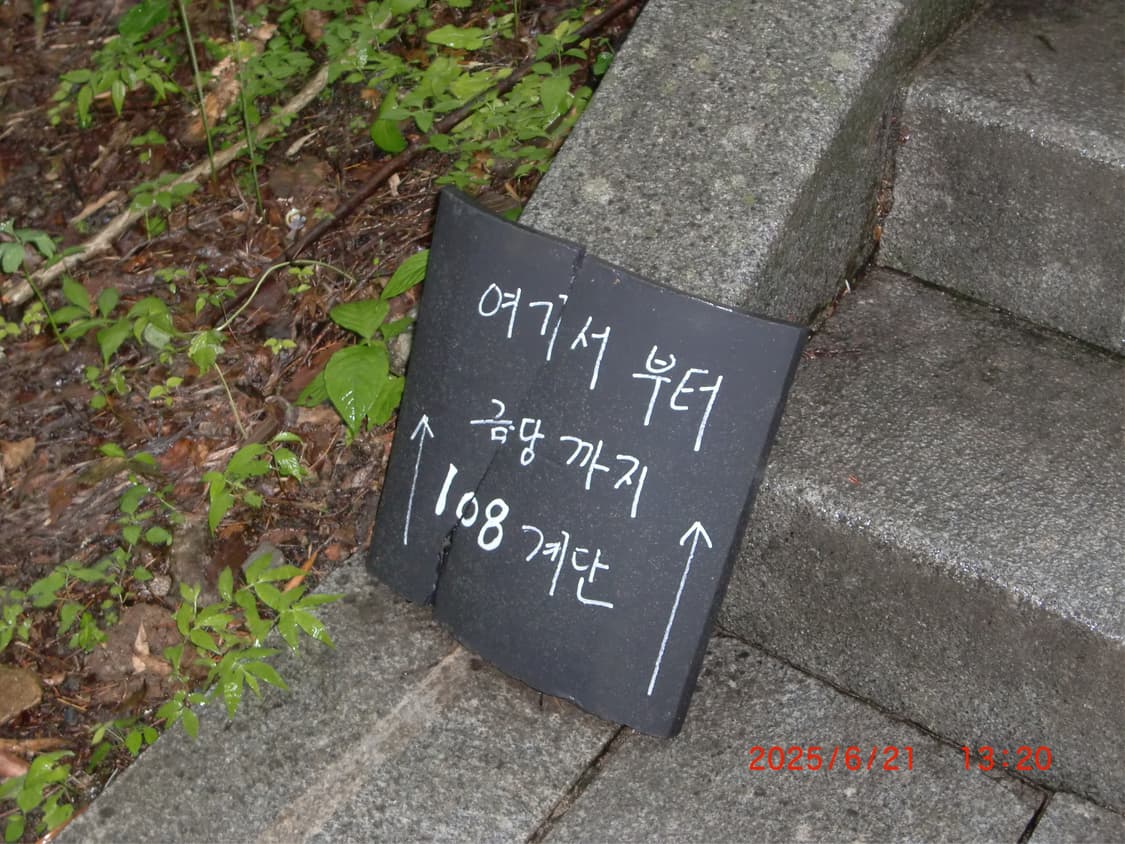 여기서 부터
금당 까지
108 계단
2025/6/21 13:20